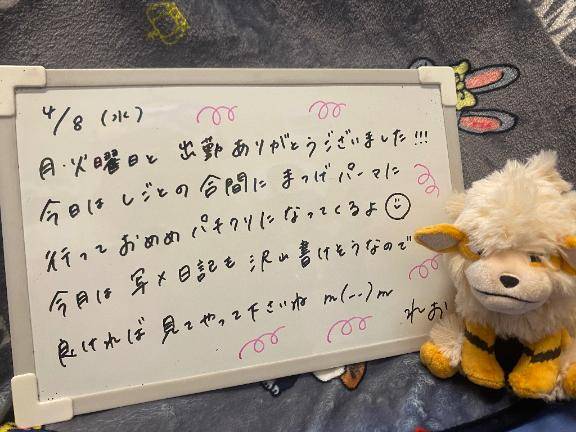 4/8 (水)
月・火曜日と 出勤ありがとうございました!!!
今日はしごとの合間にまつげパーマに
行っておめめパチクリになってくるよ
今月は写メ日記も沢山書けそうなので
良ければ見てやって下さいね m(--)m
れお